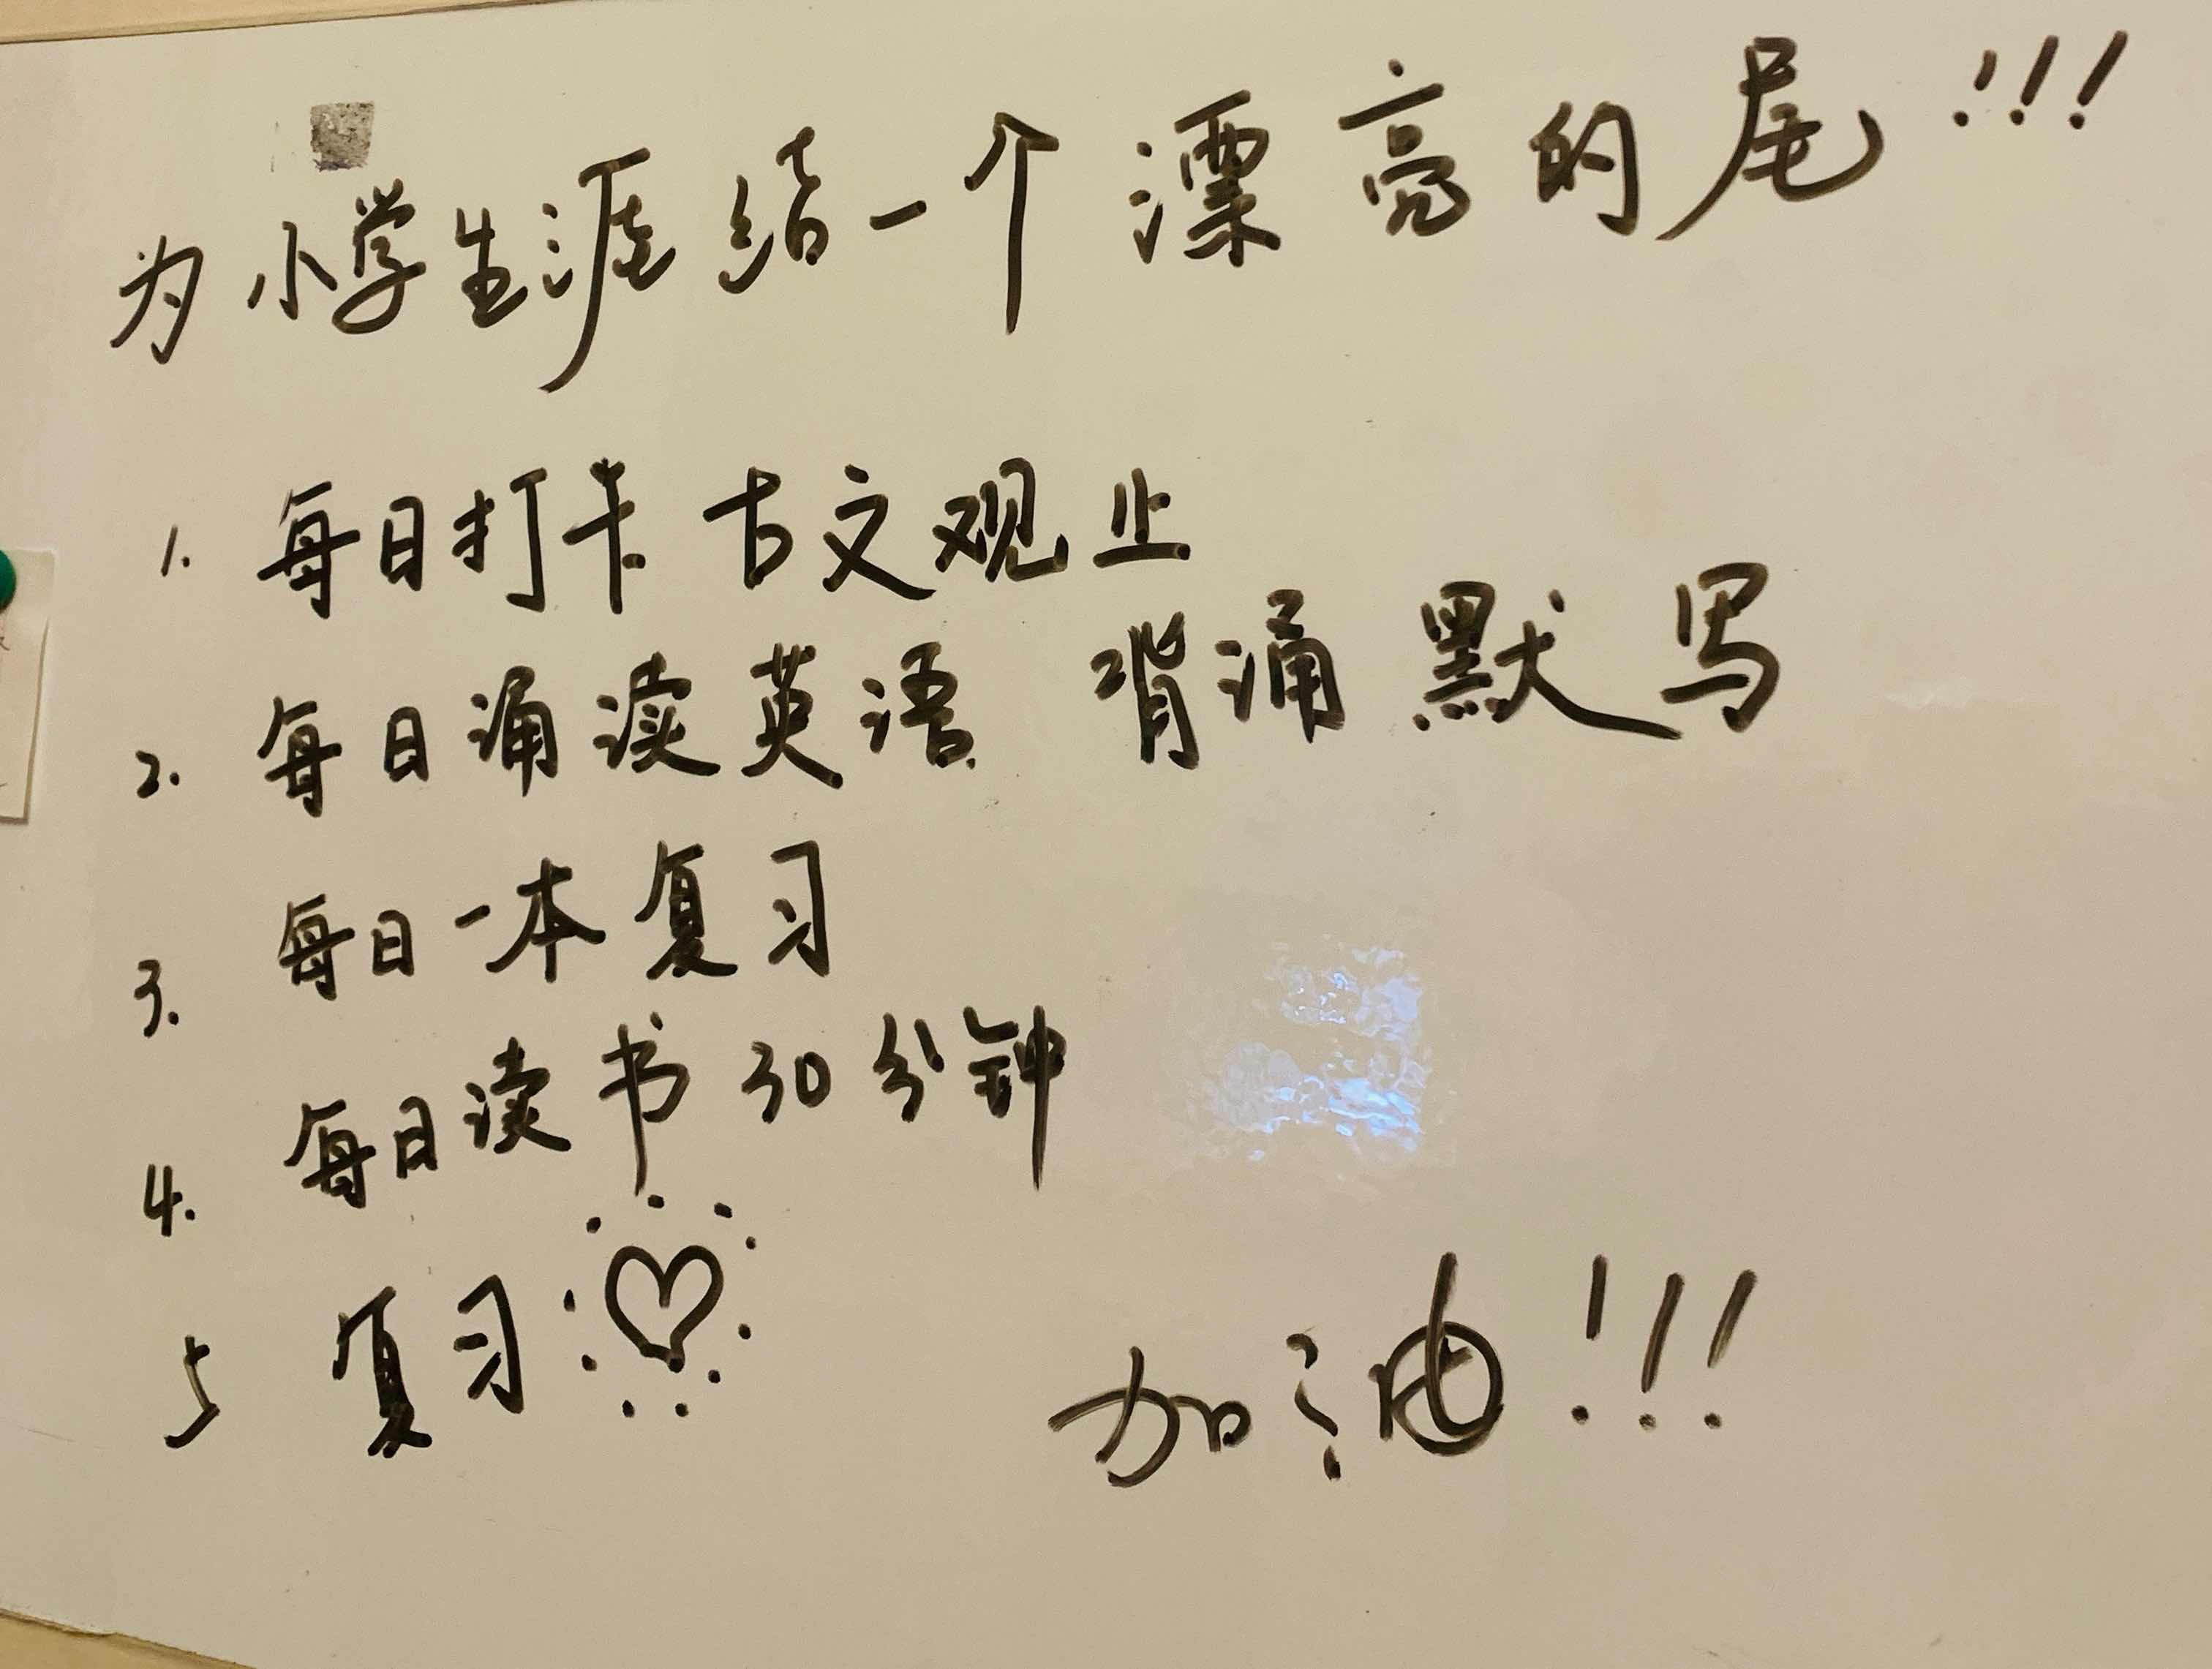 为小学生涯结一个漂亮的尾!!!
1. 每日打卡 古文观止
2. 每日诵读英语 背诵默写
3. 每日一本复习
4. 每日读书30分钟
5 复习
加油!!!